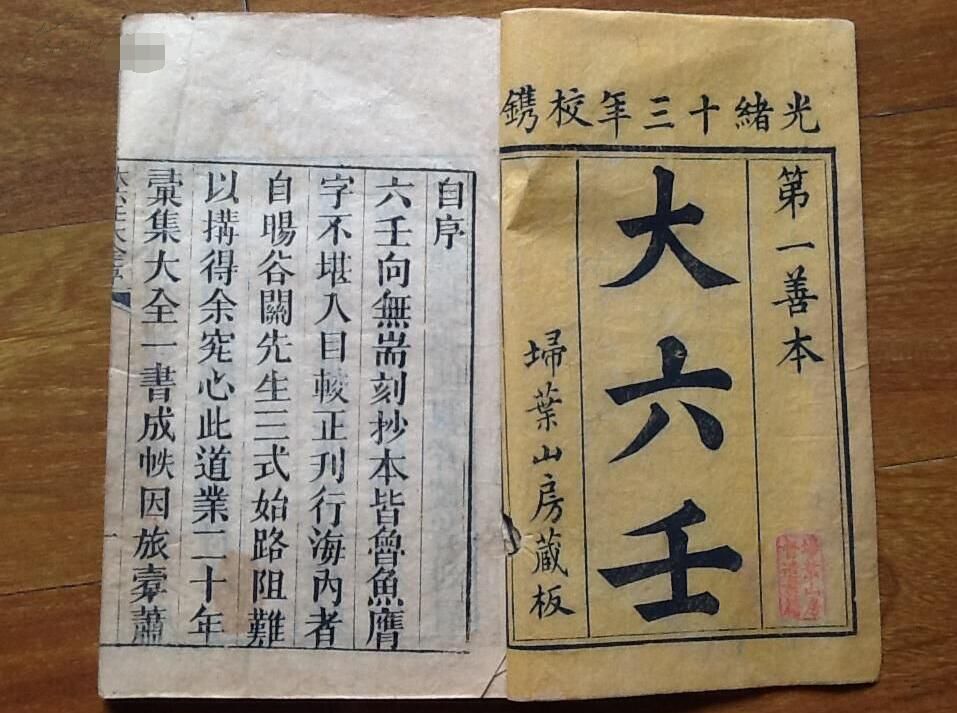 光緒十三年校鐫
第一善本
大六壬
埽葉山房藏板
自序
六壬向無耑刻抄本皆魯魚鴈
字不堪入目較正刋行海內者
自暘谷關先生三式始路阻難
以搆得余究心此道業二十年
彚集大全一書成帙因旅橐蕭